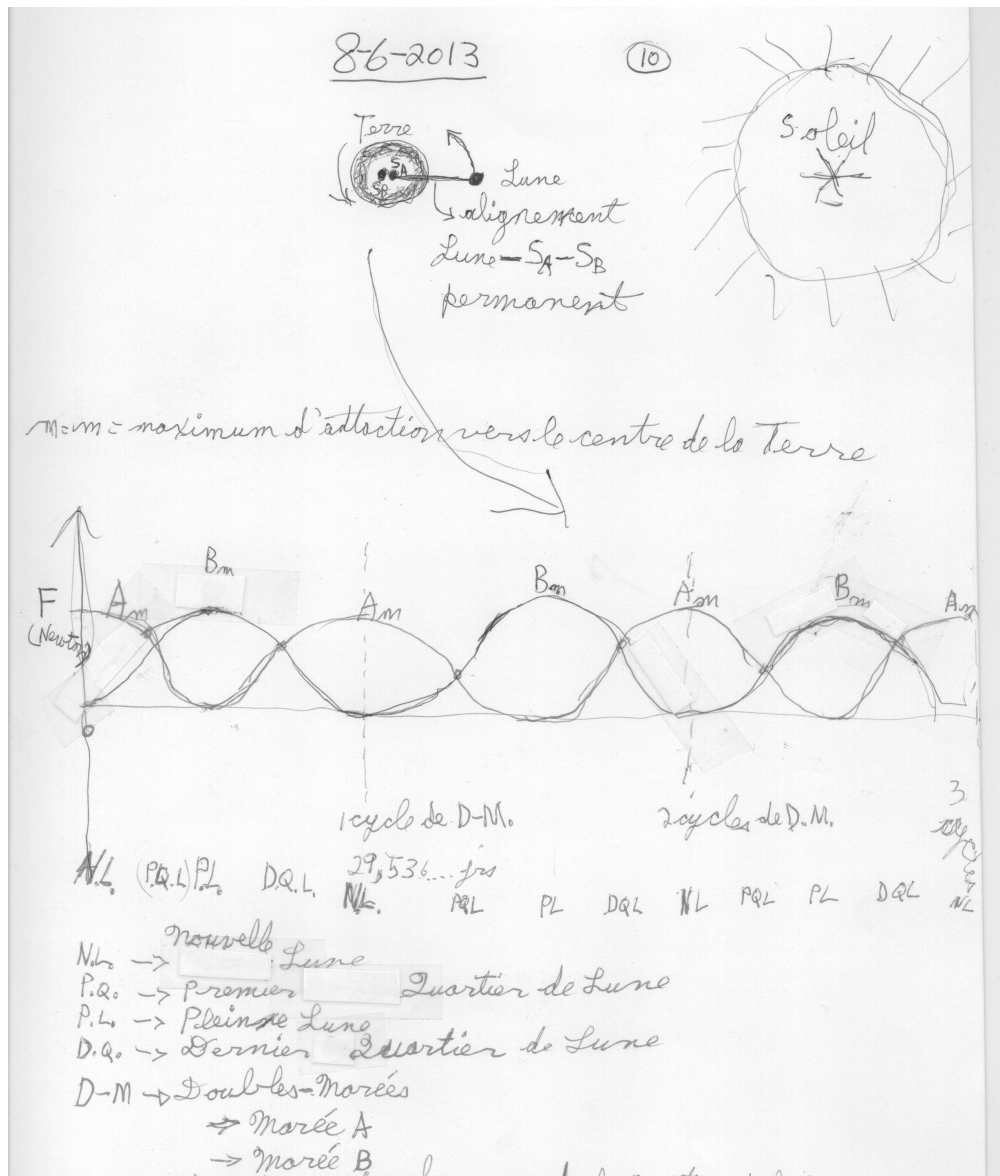 8-6-2013
10
Terre
Soleil
SA
SB
Lune
alignement
Lune-SA-SB
permanent
m=m=maximum d'attaction vers le centre de la Terre
F
(Newton)
Am
Bm
Am
Bm
Am
Bm
Am
0
1 cycle de D-M.
2 cycles de D.M.
3
29,536... jrs
N.L. (P.Q.L) P.L. D.Q.L. N.L. PQL PL DQL NL PQL PL DQL NL
N.L. -> Nouvelle Lune
P.Q. -> Premier Quartier de Lune
P.L. -> Pleine Lune
D.Q. -> Dernier Quartier de Lune
D-M -> Doubles-Marées
-> Marée A
-> Marée B